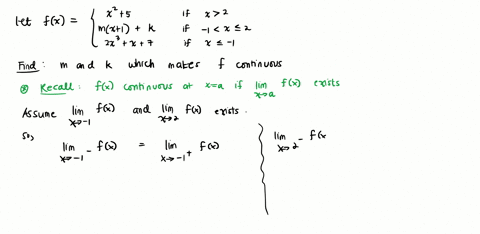 let f(x) = { x² + 5 if x > 2
m(x+1) + k if -1 < x ≤ 2
2x³ + x + 7 if x ≤ -1
Find : m and k which makes f continuous
⊛ Recall : f(x) continuous at x=a if lim x→a f(x) exists
Assume lim x→-1 f(x) and lim x→2 f(x) exists .
So,
lim x→-1⁻ f(x) = lim x→-1⁺ f(x)
lim x→2⁻ f(x